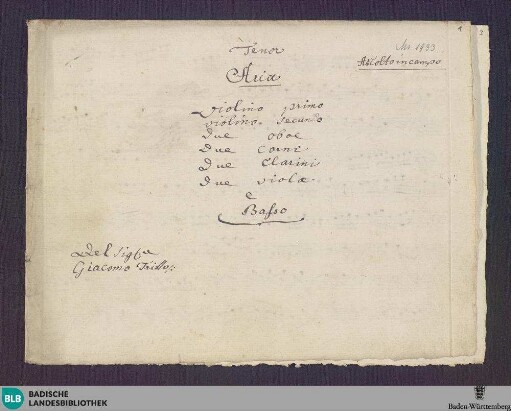 Tenor
Ms 1933
Ascolto in campo
Aria
Violino primo
violino. Secundo
due oboe
due Corni
due Clarini
due viole
e
Basso
Del Sig:re
Giacomo
1
2
BLB
BADISCHE
LANDESBIBLIOTHEK
Baden-Württemberg